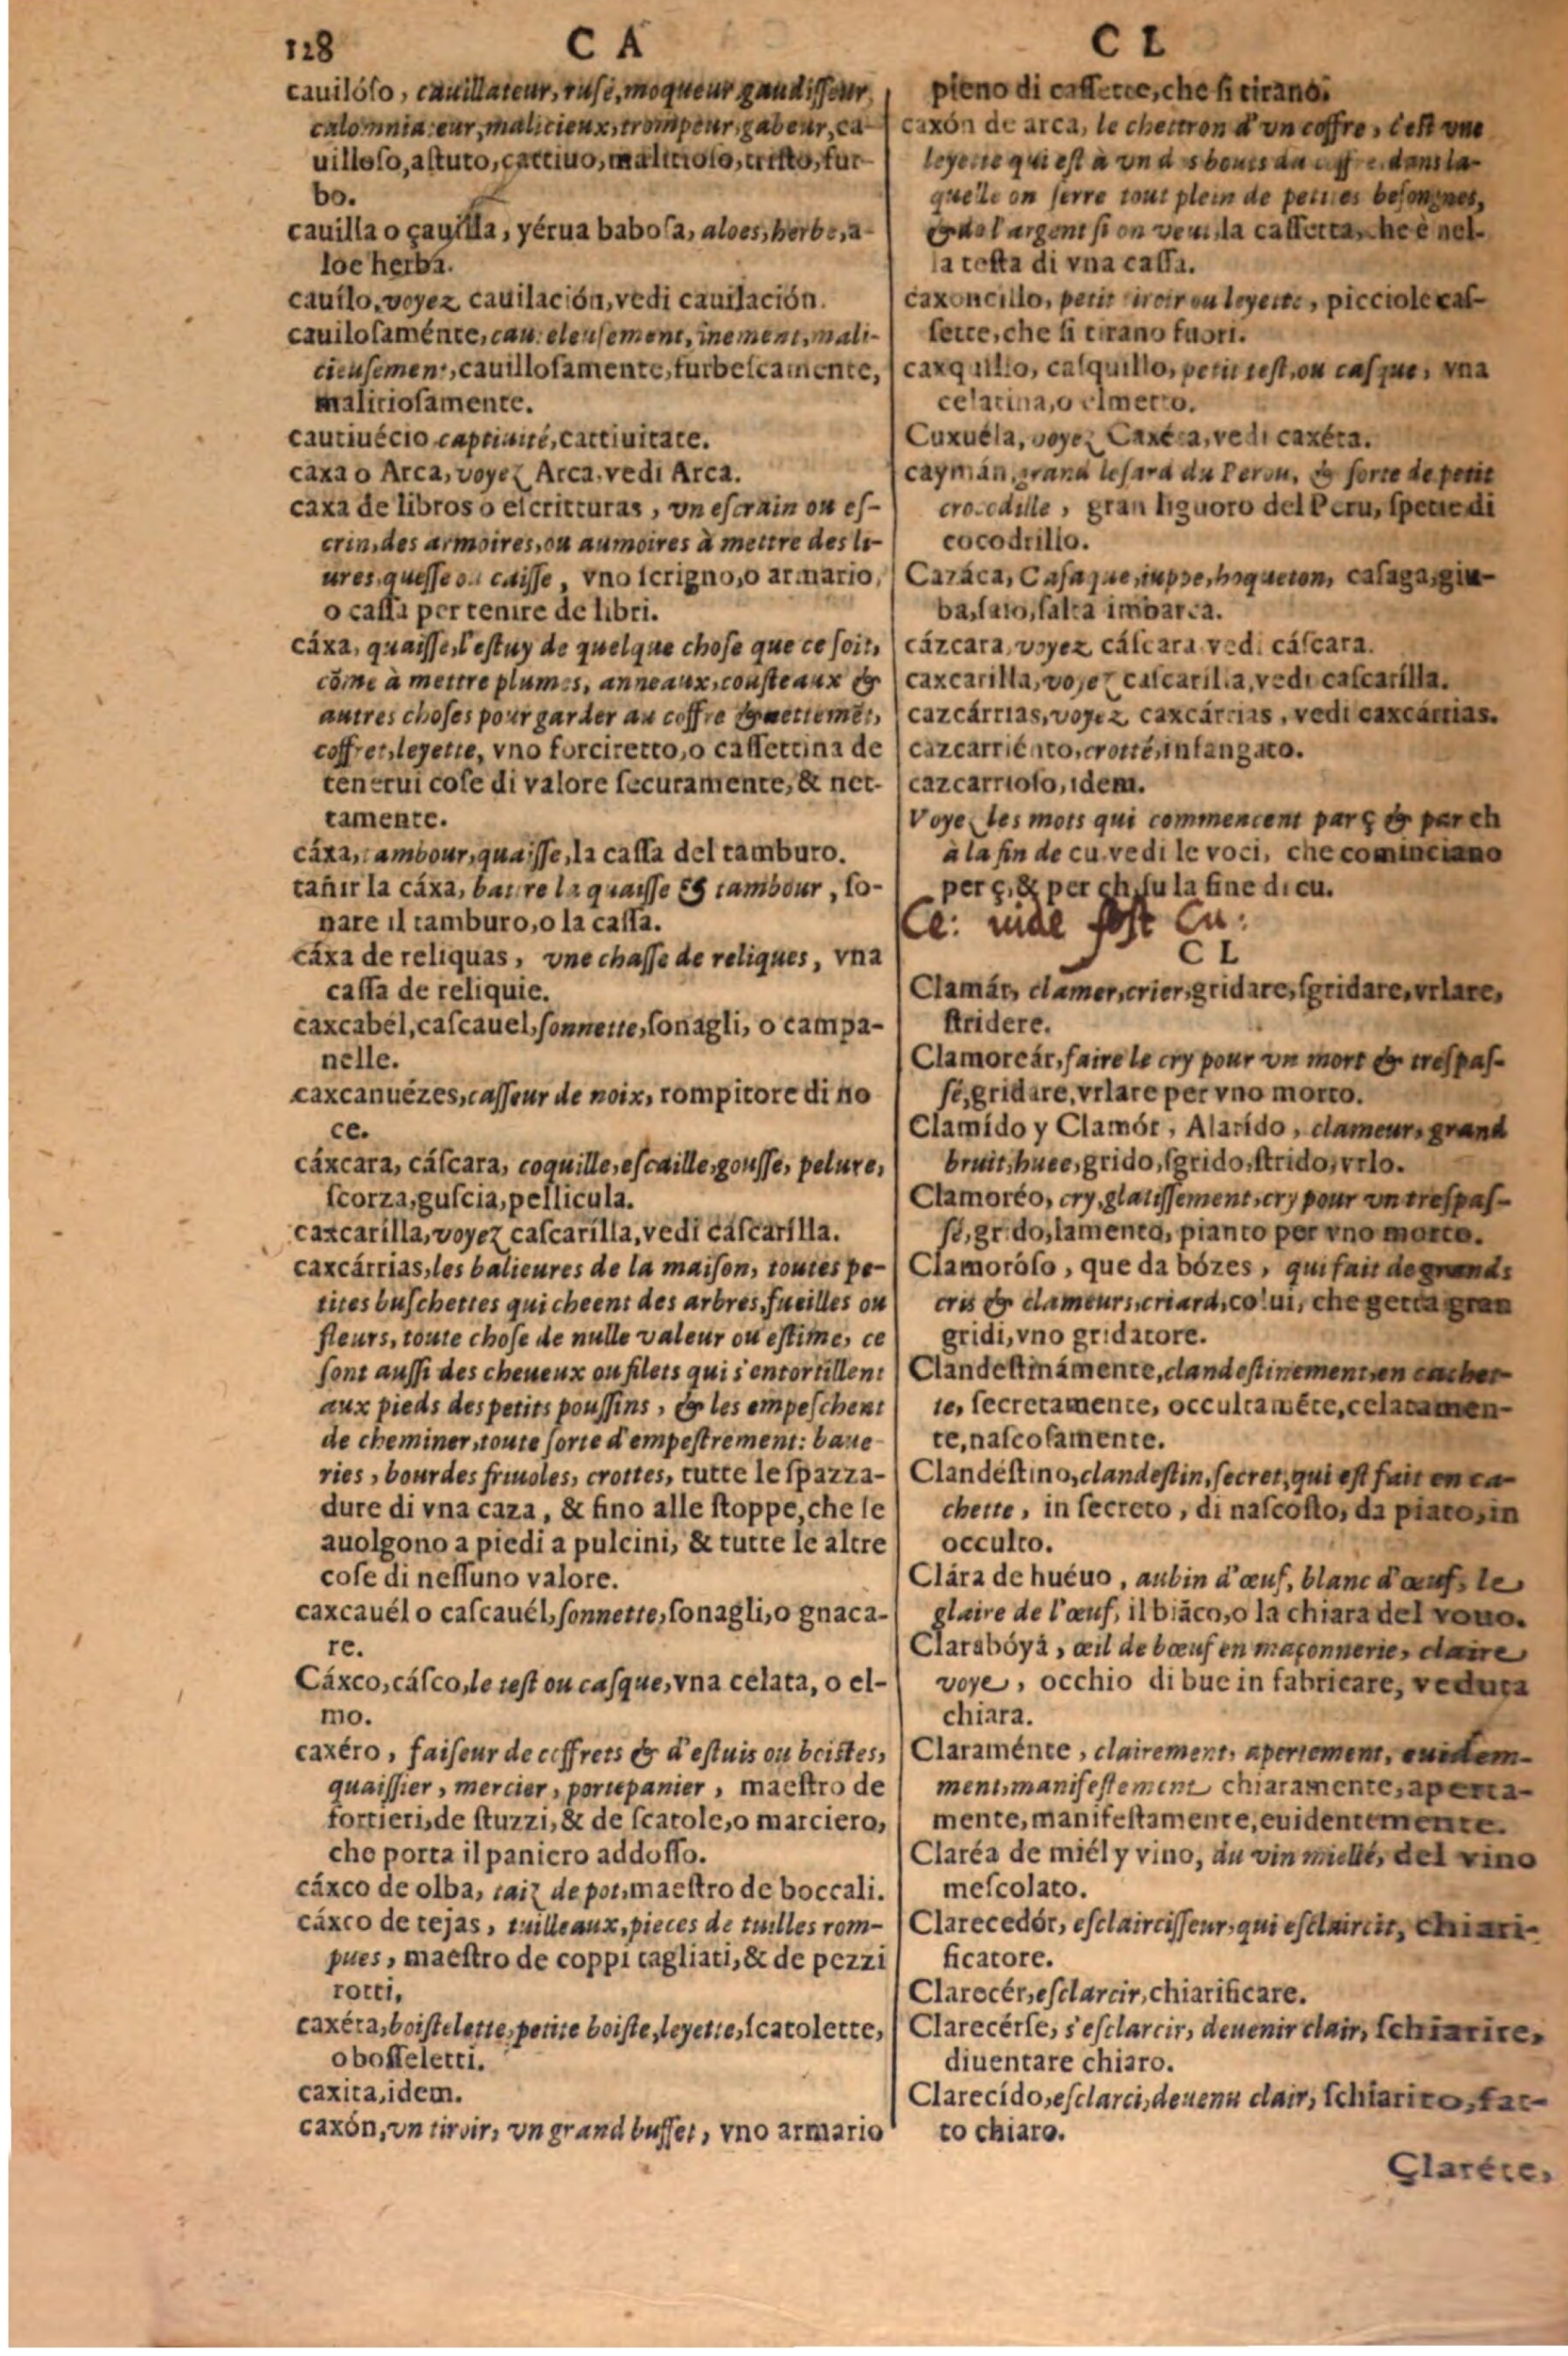 128 C A
cauilóſo, cauillateur, ruſé, moqueur gaudiſſeur,
calomniateur, malicieux, trompeur, gabeur, ca-
uilloſo, aſtuto, cattiuo, malitioſo, triſto, fur-
bo.
cauilla o çauilla, yérua baboſa, aloes, herbe, a-
loe herba.
cauílo, voyez cauilación, vedi cauilación.
cauiloſaménte, cauteleuſement, finement, mali-
cieuſement, cauilloſamente, furbeſcamente,
malitioſamente.
cautiuécio captiuité, cattiuitate.
caxa o Arca, voyez Arca, vedi Arca.
caxa de libros o eſcritturas, vn eſcrain ou eſ-
crin, des armoires, ou aumoires à mettre des li-
ures, queſſe ou caiſſe, vno ſcrigno, o armario,
o caſſa per tenire de libri.
cáxa, quaiſſe, l'eſtuy de quelque choſe que ce ſoit,
cõme à mettre plumes, anneaux, couſteaux &
autres choſes pour garder au coffre & nettemẽt,
coffret, leyette, vno forciretto, o caſſettina de
tenerui coſe di valore ſecuramente, & net-
tamente.
cáxa, tambour, quaiſſe, la caſſa del tamburo.
tañir la cáxa, battre la quaiſſe & tambour, ſo-
nare il tamburo, o la caſſa.
cáxa de reliquas, vne chaſſe de reliques, vna
caſſa de reliquie.
caxcabél, caſcauel, ſonnette, ſonagli, o campa-
nelle.
caxcanuézes, caſſeur de noix, rompitore di no
ce.
cáxcara, cáſcara, coquille, eſcaille, gouſſe, pelure,
ſcorza, guſcia, pellicula.
caxcarílla, voyez caſcarílla, vedi caſcarílla.
caxcárrias, les balieures de la maiſon, toutes pe-
tites buſchettes qui cheent des arbres, fueilles ou
fleurs, toute choſe de nulle valeur ou eſtime, ce
ſont auſſi des cheueux ou filets qui s'entortillent
aux pieds des petits pouſſins, & les empeſchent
de cheminer, toute ſorte d'empeſtrement: baue-
ries, bourdes friuoles, crottes, tutte le ſpazza-
dure di vna caza, & fino alle ſtoppe, che ſe
auolgono a piedi a pulcini, & tutte le altre
coſe di neſſuno valore.
caxcauél o caſcauél, ſonnette, ſonagli, o gnaca-
re.
Cáxco, cáſco, le teſt ou caſque, vna celata, o el-
mo.
caxéro, faiſeur de coffrets & d'eſtuis ou boiſtes,
quaiſſier, mercier, portepanier, maeſtro de
fortieri, de ſtuzzi, & de ſcatole, o marciero,
che porta il paniero addoſſo.
cáxco de olba, taiz de pot, maeſtro de boccali.
cáxco de tejas, tuilleaux, pieces de tuilles rom-
pues, maeſtro de coppi tagliati, & de pezzi
rotti,
caxéta, boiſtelette, petite boiſte, leyette, ſcatolette,
o boſſeletti.
caxita, idem.
caxón, vn tiroir, vn grand buffet, vno armario
C L
pieno di caſſette, che ſi tirano.
caxón de arca, le chettron d'vn coffre, c'eſt vne
leyette qui eſt à vn des bouts du coffre, dans la-
quelle on ſerre tout plein de petites beſongnes,
& de l'argent ſi on veut, la caſſetta, che è nel-
la teſta di vna caſſa.
caxoncillo, petit tiroir ou leyette, picciole caſ-
ſette, che ſi tirano fuori.
caxquillo, caſquillo, petit teſt, ou caſque, vna
celatina, o elmetto.
Cuxuéla, voyez Caxéta, vedi caxéta.
caymán, grand leſard du Perou, & ſorte de petit
crocodille, gran liguoro del Peru, ſpetie di
cocodrillo.
Cazáca, Caſaque, iuppe, hoqueton, caſaga, giu-
ba, ſaio, ſalta imbarca.
cázcara, voyez cáſcara vedi cáſcara.
caxcarilla, voyez caſcarilla, vedi caſcarílla.
cazcárrias, voyez caxcárrias, vedi caxcárrias.
cazcarriénto, crotté, infangato.
cazcarrioſo, idem.
Voyez les mots qui commencent par ç & par ch
à la fin de cu. vedi le voci, che cominciano
per ç, & per ch, ſu la fine di cu.
Ce: uide poſt Cu:
C L
Clamár, clamer, crier, gridare, ſgridare, vrlare,
ſtridere.
Clamoreár, faire le cry pour vn mort & treſpaſ-
ſé, gridare, vrlare per vno morto.
Clamído y Clamór, Alarído, clameur, grand
bruit, huee, grido, ſgrido, ſtrido, vrlo.
Clamoréo, cry, glatiſſement, cry pour vn treſpaſ-
ſé, grido, lamento, pianto per vno morto.
Clamoróſo, que da bózes, qui fait de grands
cris & clameurs, criard, colui, che getta gran
gridi, vno gridatore.
Clandeſtinámente, clandeſtinement, en cachet-
te, ſecretamente, occultamẽte, celatamen-
te, naſcoſamente.
Clandéſtino, clandeſtin, ſecret, qui eſt fait en ca-
chette, in ſecreto, di naſcoſto, da piato, in
occulto.
Clára de huéuo, aubin d'œuf, blanc d'œuf, le
glaire de l'œuf, il biãco, o la chiara del vouo.
Clarabóyá, œil de bœuf en maçonnerie, claire
voye, occhio di bue in fabricare, veduta
chiara.
Claraménte, clairement, apertement, euidem-
ment, manifeſtement chiaramente, aperta-
mente, manifeſtamente, euidentemente.
Claréa de miél y vino, du vin miellé, del vino
meſcolato.
Clarecedór, eſclairciſſeur, qui eſclaircit, chiari-
ficatore.
Clarecér, eſclarcir, chiarificare.
Clarecérſe, s'eſclarcir, deuenir clair, ſchiarire,
diuentare chiaro.
Clarecído, eſclarci, deuenu clair, ſchiarito, fat-
to chiaro.
Claréte,